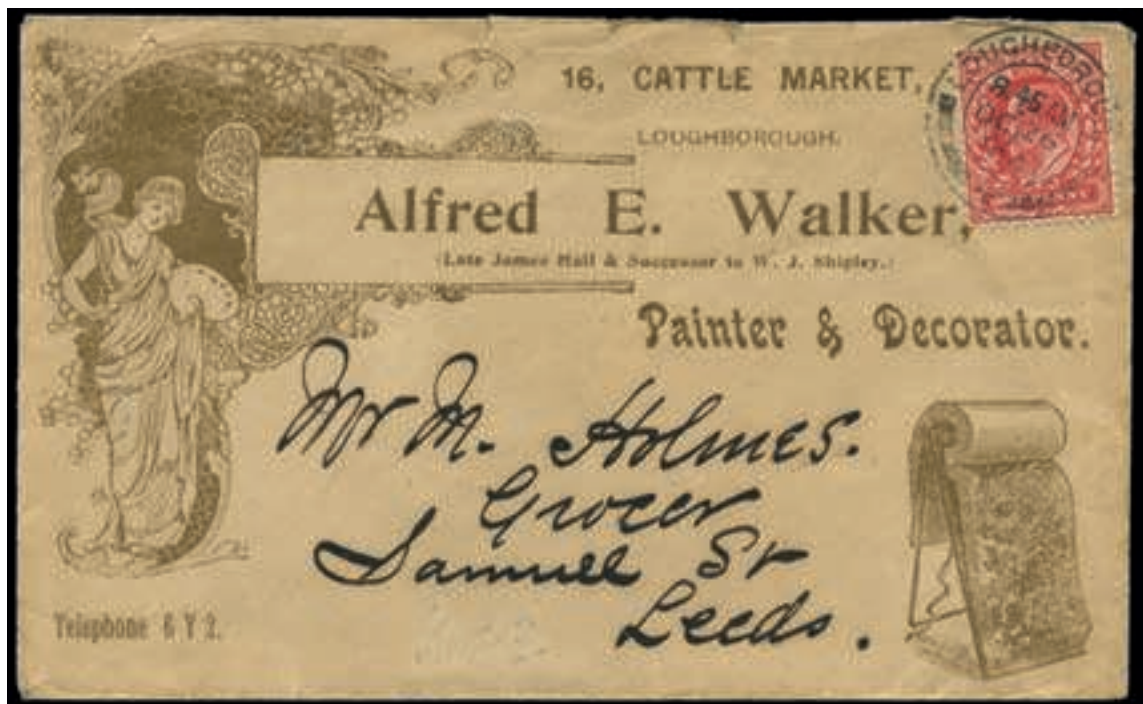 16, CATTLE MARKET,
LOUGHBOROUGH.
Alfred E. Walker,
(Late James Hall & Successor to W. J. Shipley.)
Painter & Decorator.
Mr M. Holmes.
Grocer
Samuel St
Leeds.
Telephone 6 Y 2.
LOUGHBOROUGH